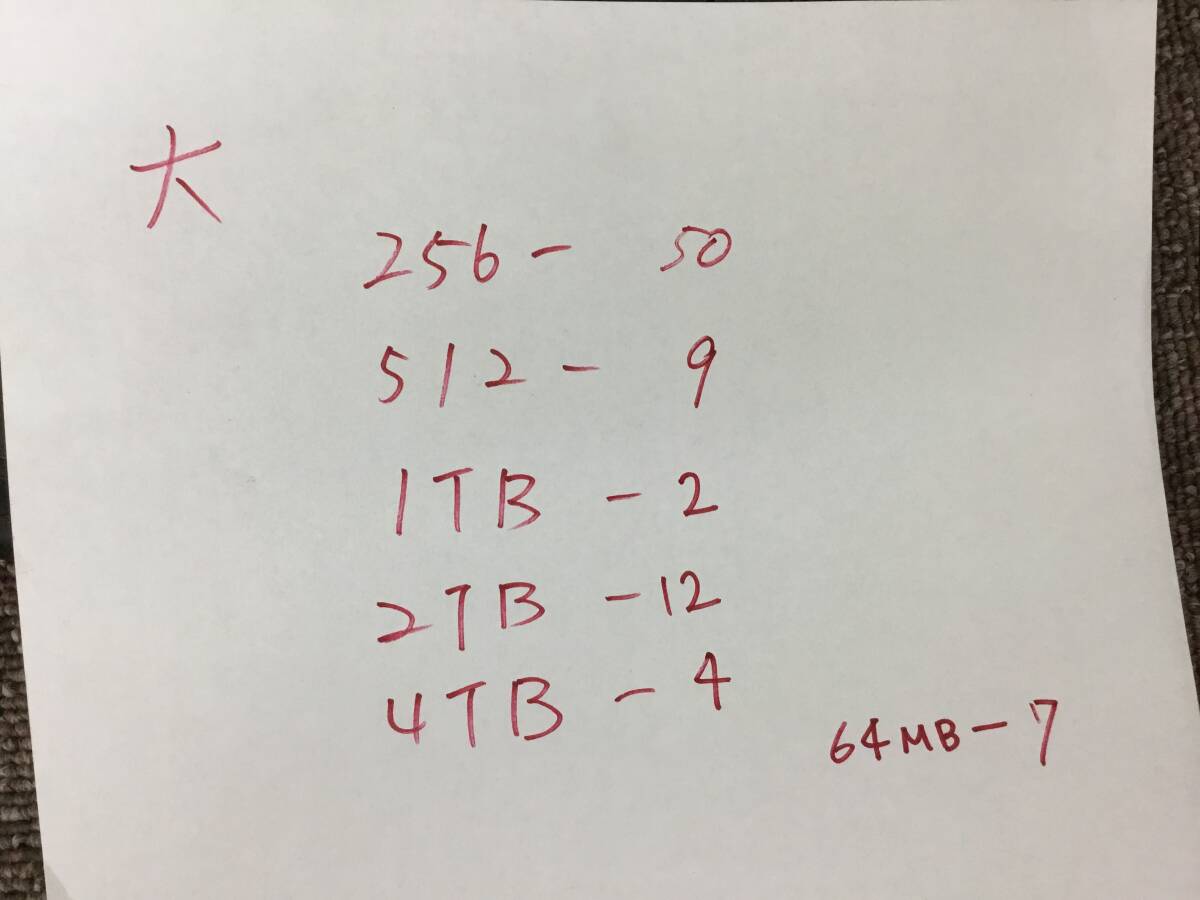 大
256- 50
512- 9
1TB -2
2TB -12
4TB -4
64MB-7